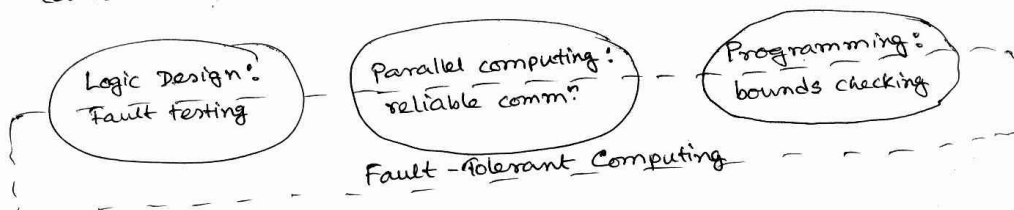 Logic Design:
Fault testing
Parallel computing:
reliable commn
Programming:
bounds checking
Fault-Tolerant Computing